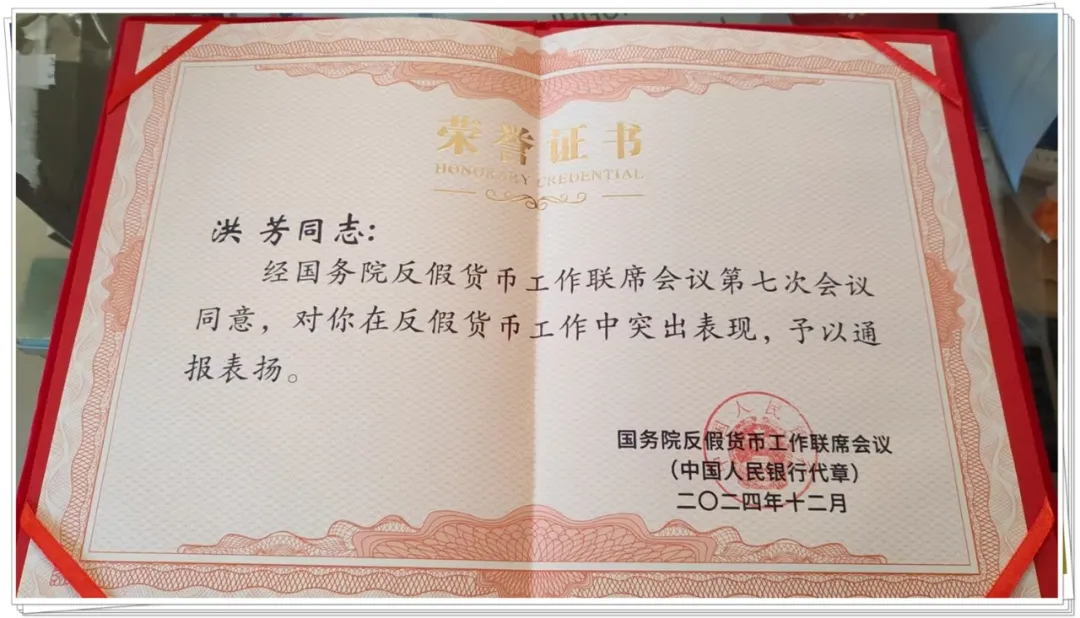 荣誉证书
HONORARY CREDENTIAL
洪 芳同志:
经国务院反假货币工作联席会议第七次会议
同意，对你在反假货币工作中突出表现，予以通
报表扬。
国务院反假货币工作联席会议
（中国人民银行代章）
二〇二四年十二月